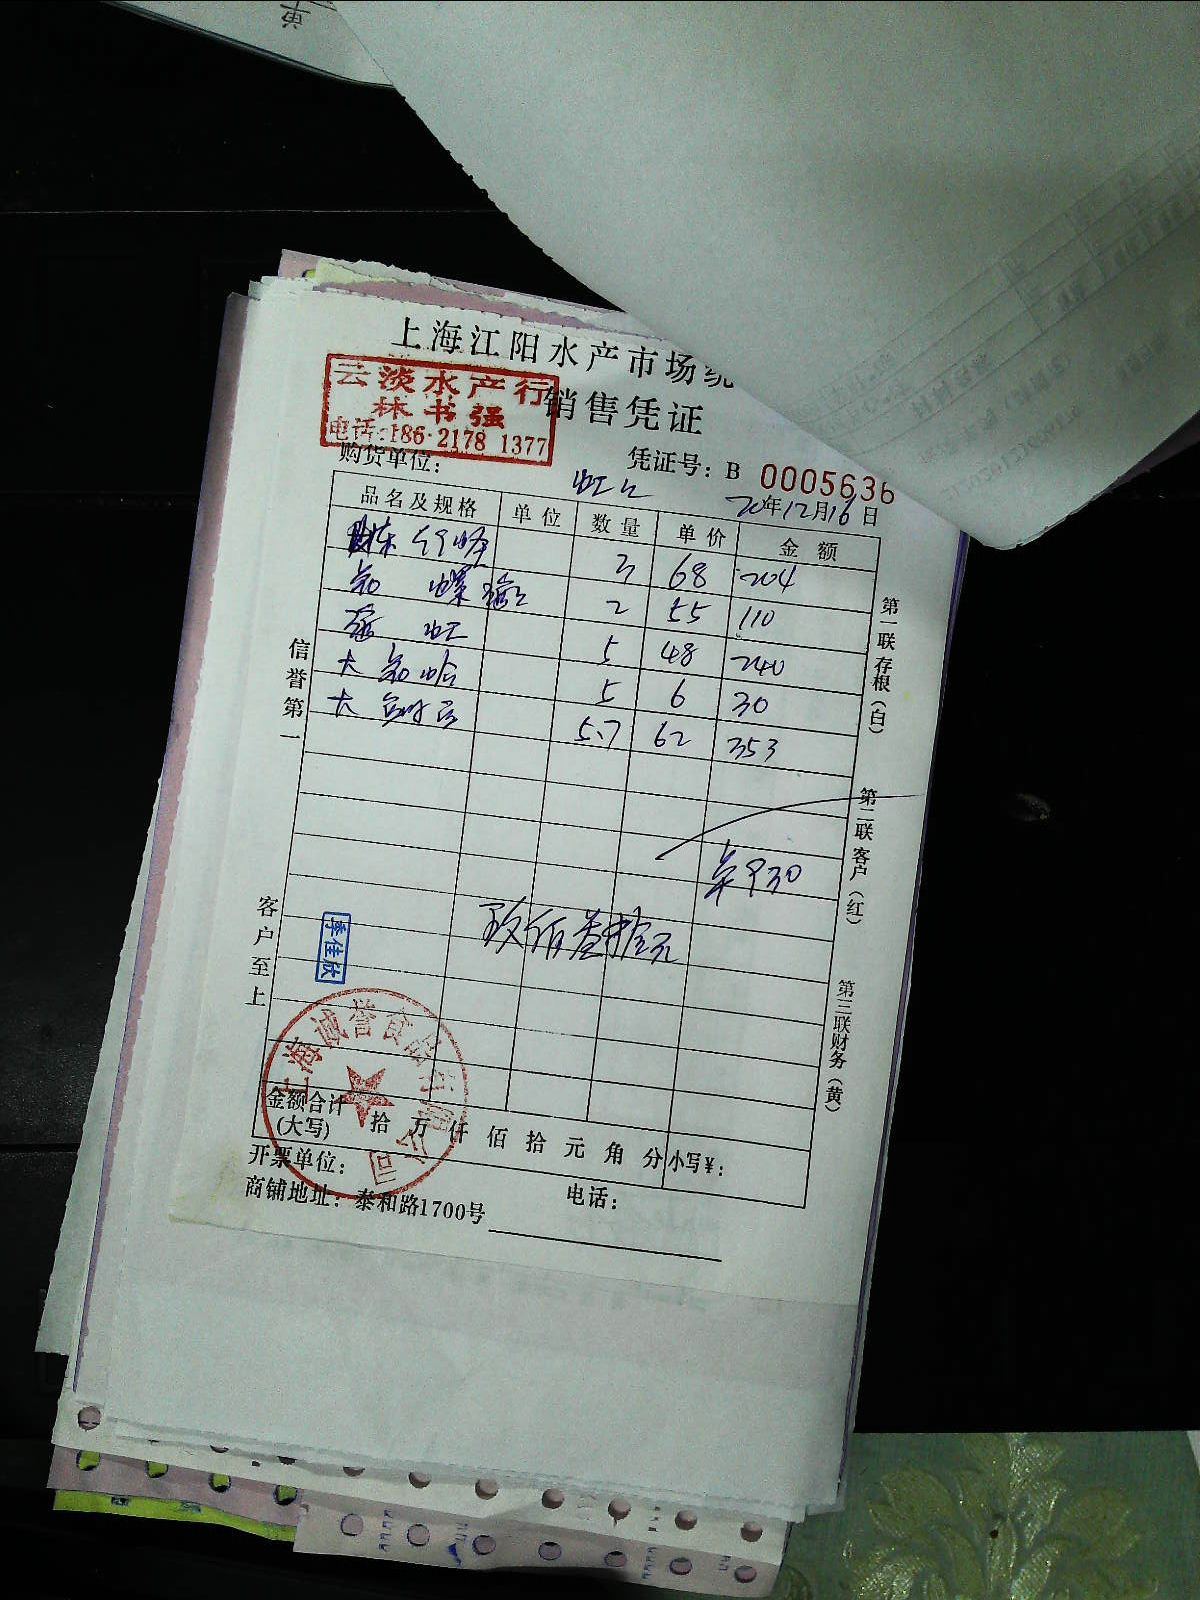 上海江阳水产市场统
销售凭证
云淡水产行
林书强
电话:186 2178 1377
购货单位:
凭证号: B 0005636
虹江
20年12月16日
品名及规格 单位 数量 单价 金额
3 68 204
2 55 110
5 48 240
大 5 6 30
大 5.7 62 353
¥930
玖佰叁拾元
信誉第一
客户至上
季佳欣
上海诚誉食品有限公司
第一联存根(白)
第二联客户(红)
第三联财务(黄)
金额合计(大写) 拾 万 仟 佰 拾 元 角 分 小写¥:
开票单位: 电话:
商铺地址: 泰和路1700号